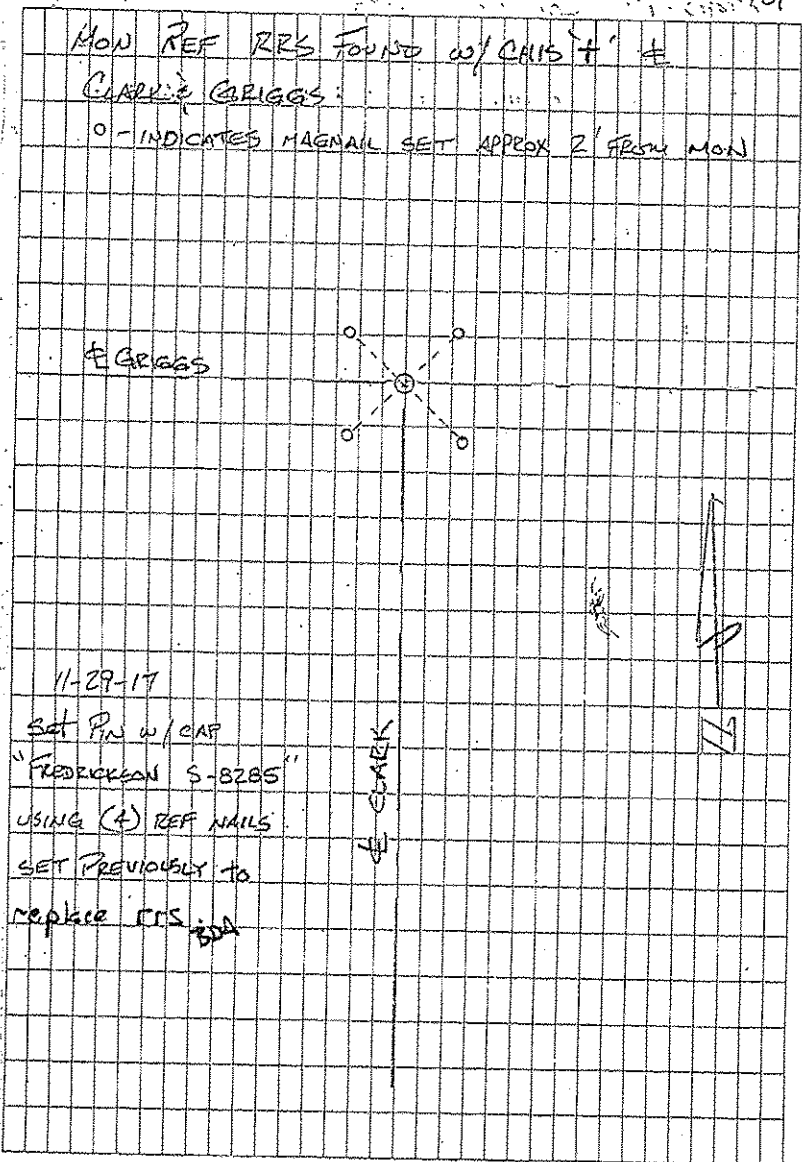 MON REF RRS FOUND W/ CHIS '+' ℄
CLARK & GRIGGS:
o - INDICATES MAGNAIL SET APPROX 2' FROM MON
℄ GRIGGS
℄ CLARK
N
11-29-17
Set PIN W/ CAP
"FREDRICKSON S-8285"
USING (4) REF NAILS
SET PREVIOUSLY to
replace rrs. BDA